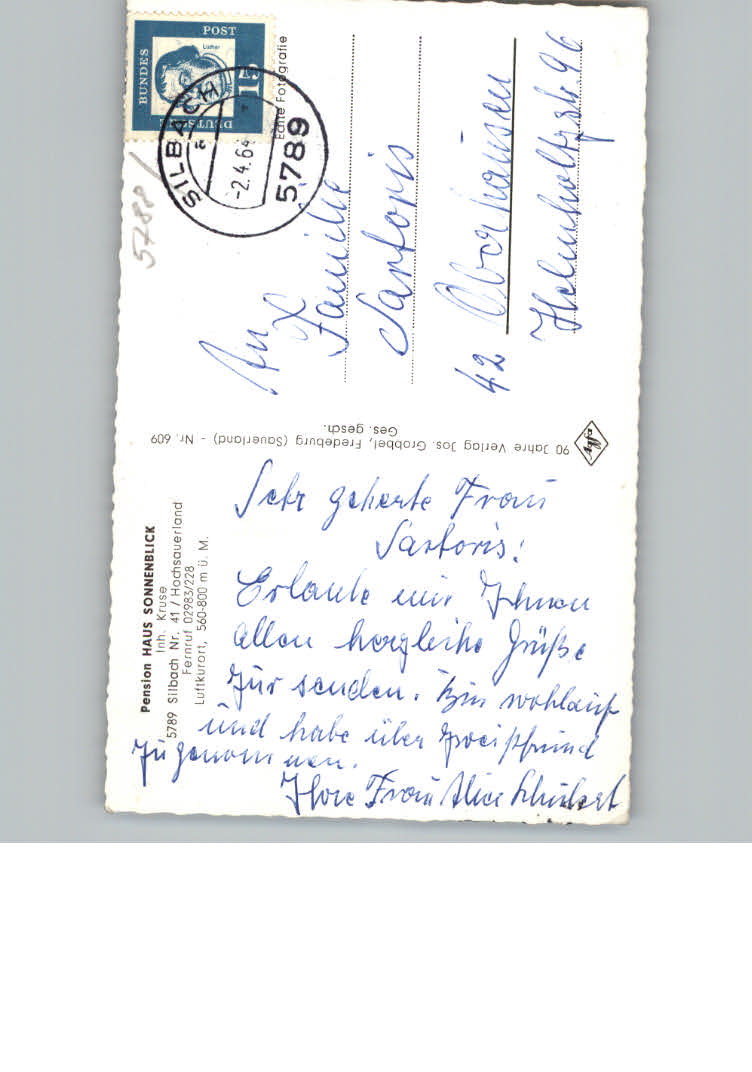 Pension HAUS SONNENBLICK
Inh. Kruse
5789 Silbach Nr. 41 / Hochsauerland
Fernruf 02983/228
Luftkurort, 560-800 m ü. M.
Sehr geherte Frau
Sartoris!
Erlaube mir Ihnen
allen herzleihe Grüße
zur senden. Bin wohlauf
und habe über zwei Pfund
zugenommen.
Ihre Frau Alice Schubert
90 Jahre Verlag Jos. Grobbel, Fredeburg (Sauerland) - Nr. 609
Ges. gesch.
agfa
Echte Fotografie
DEUTSCHE
BUNDES
POST
Luther
15
SILBACH
a
-2.4.64
5789
5788/
An
Familie
Sartoris
42 Oberhausen
Helmholtzstr 96